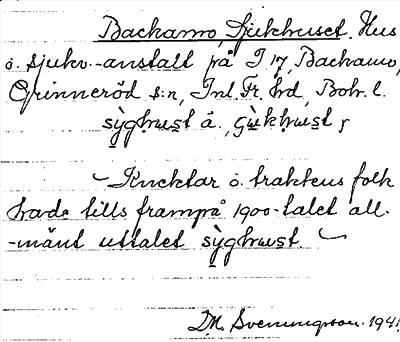 Backamo, Sjukhuset. Hus
o. sjukv.-anstalt på I 17, Backamo,
Grinneröd s:n, Inl. Fr. hd, Boh. l.
sỳghust å.
Knektar o. traktens folk
hade tills frampå 1900-talet all-
-mänt uttalet sỳghust.
D.M. Svenungsson. 1941